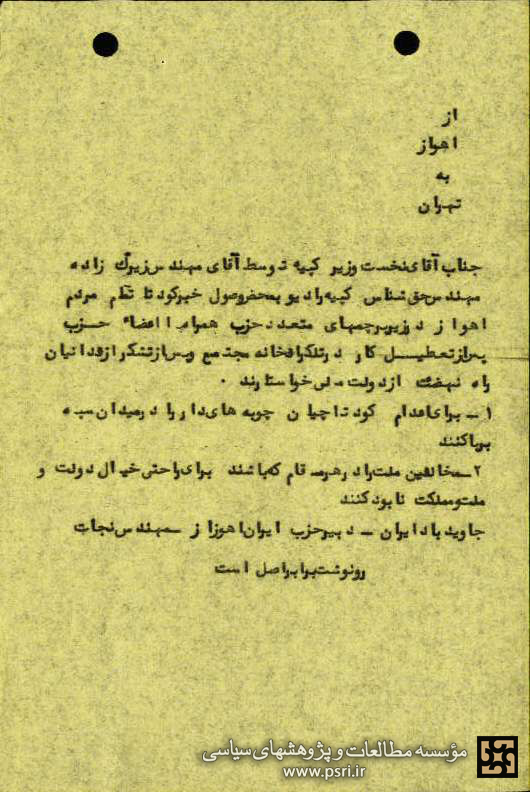 از
اهواز
به
تهران
جناب آقای نخست وزیر کپیه توسط آقای مهندس زیرک زاده
مهندس حق شناس کپیه رادیو بمحض وصول خبر کودتا تمام مردم
اهواز در زیر پرچمهای متعدد حزب همراه با اعضاء حزب
پس از تعطیل کار در تلگرافخانه مجتمع و پس از تشکر از فدائیان
راه نهضت از دولت ملی خواستارند .
۱ – برای اعدام کودتاچیان چوبه های دار را در میدان سپه
برپا کنند
۲ – مخالفین ملت را در هر مقام که باشند برای راحتی خیال دولت و
ملت و مملکت نابود کنند
جاوید باد ایران – دبیر حزب ایران اهواز – مهندس نجات
رونوشت برابر اصل است
مؤسسه مطالعات و پژوهشهای سیاسی
www.psri.ir